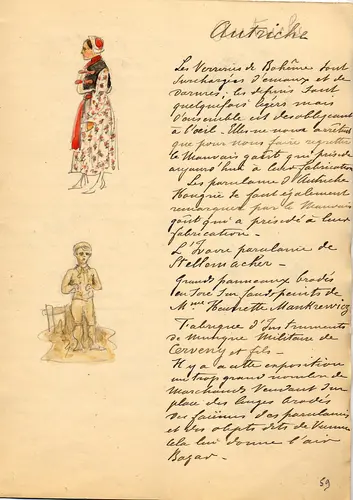 Autriche
Les Verreries de Bohême sont
surchargées d'emaux et de
dorures; les depuis sont
quelquefois légers mais
d'ensemble est désobligeant
à l'oeil. Elles ne nous arrêtent
que pour nous faire regretter
le Mauvais goût qui préside
aujourd'hui à leur fabrication
Les porcelaine d'Autriche
Hongrie se font également
remarquer par le Mauvais
goût qui a présidé à leur
fabrication -
L'Ivoire porcelaine de
Stellemacher -
Grands panneaux brodés
en Soie Sur fonds peints de
Mme Henriette Mankiewicz
Fabrique d'Instruments
de musique Militaire de
Cerveny et fils -
Il y a à cette exposition
un trop grand nombre de
Marchands Vendant sur
place des linges brodés
des faïences des porcelaines
et des objets dits de Vienne
Cela lui donne l'air
Bazar -
59